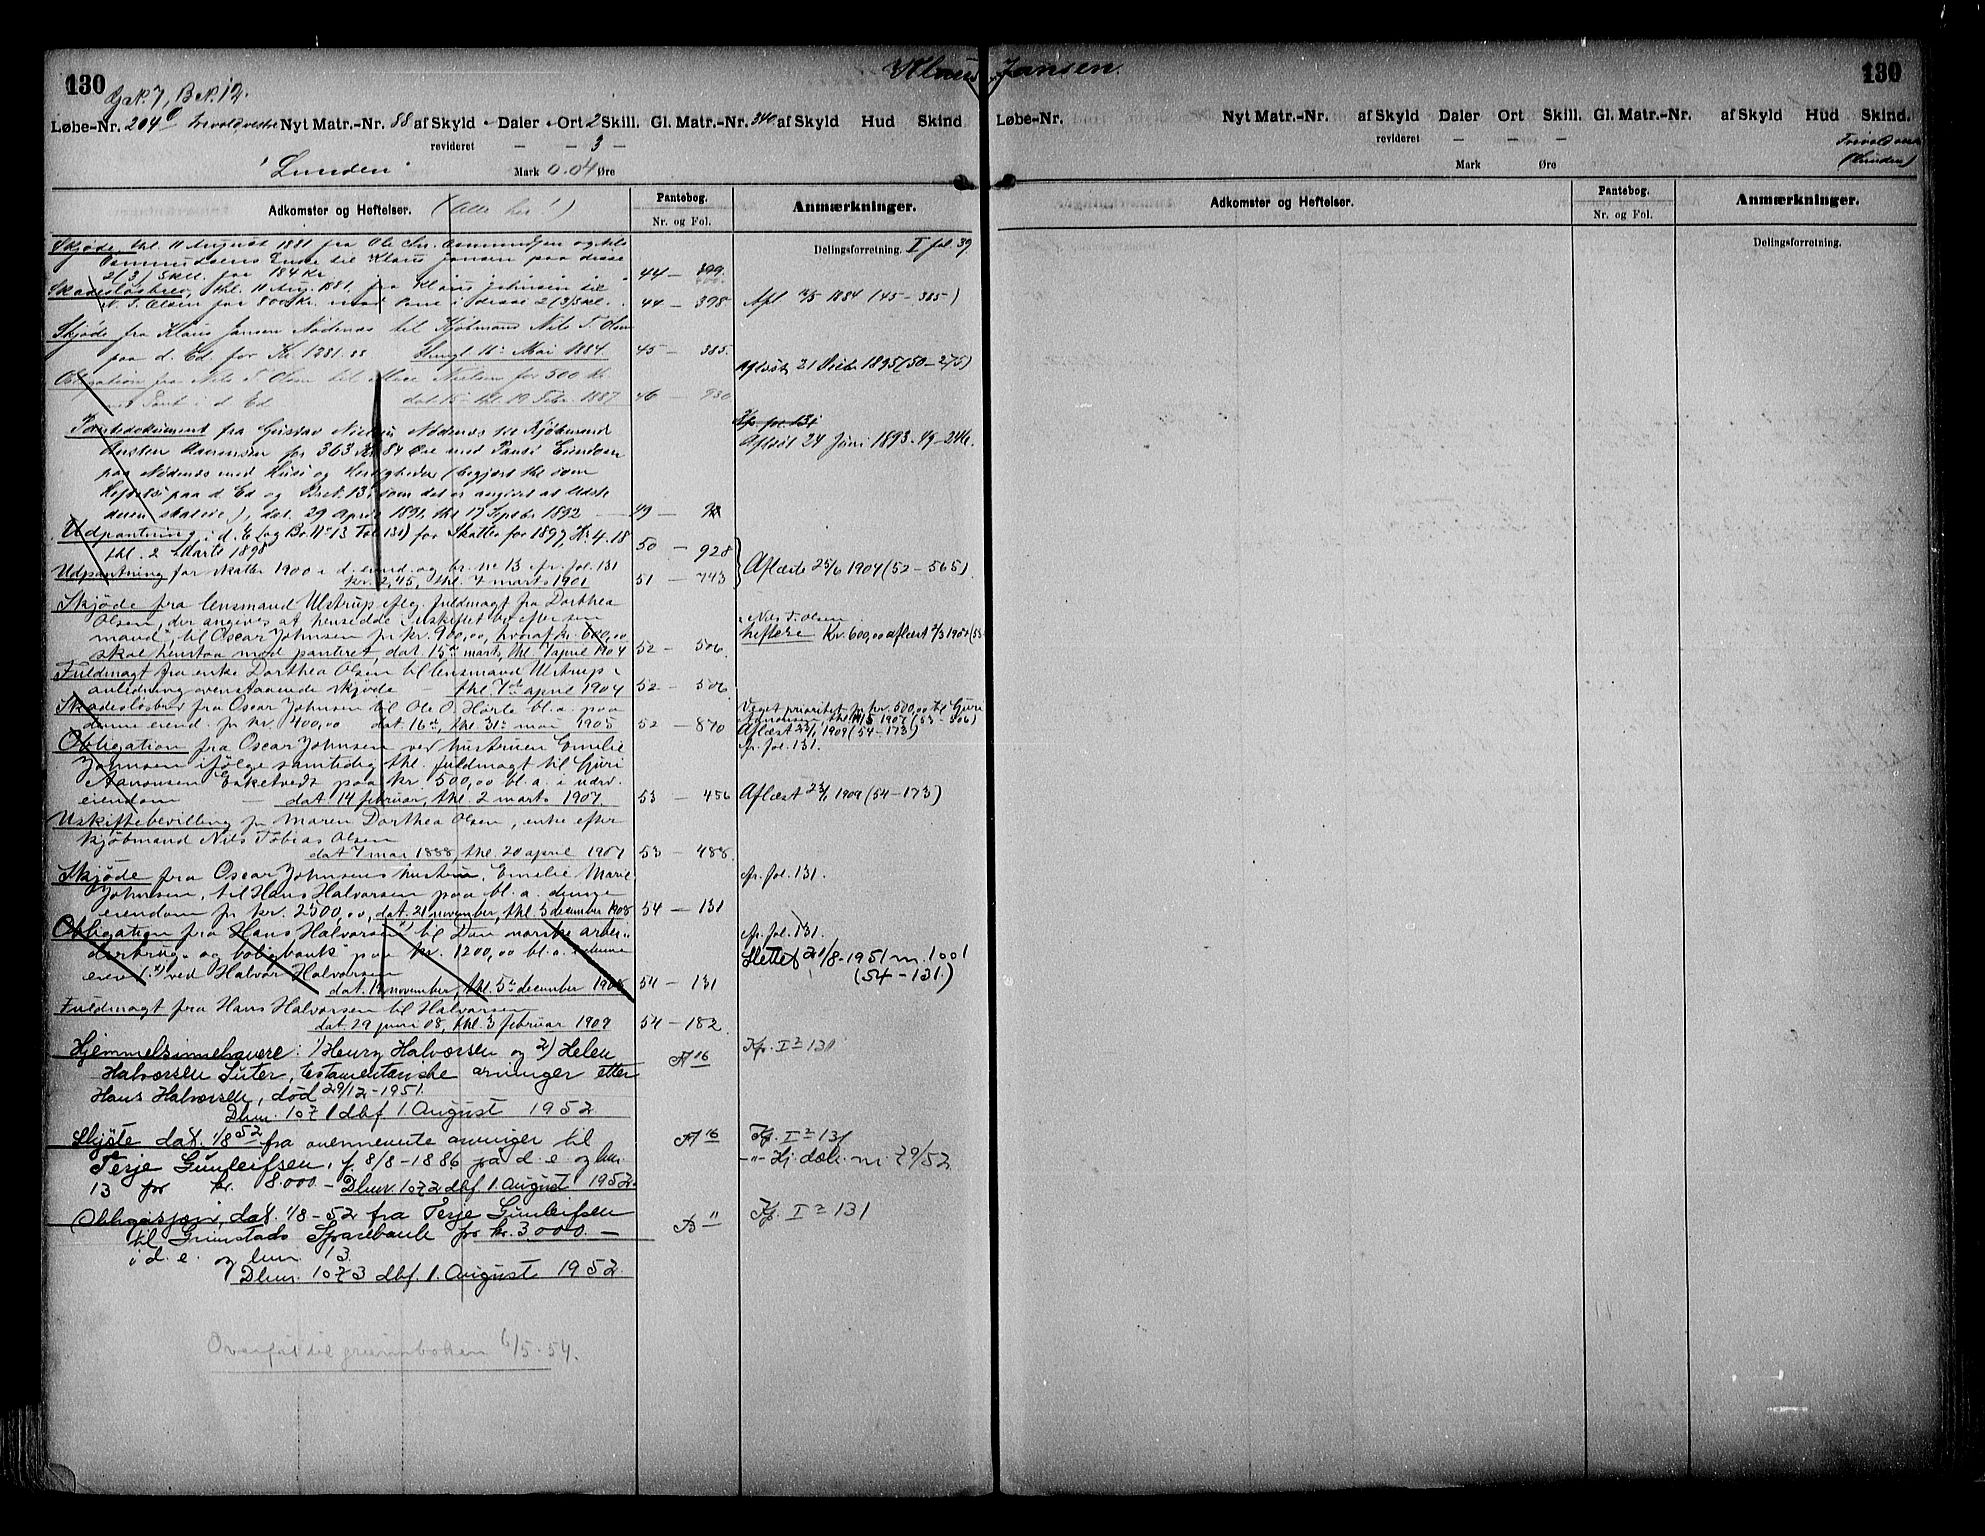 130
Klaus Jansen
130
G.N. 7, B.N. 12.
Løbe-Nr. 204 Nyt Matr.-Nr. 88 af Skyld - Daler - Ort 2 Skill. Gl. Matr.-Nr. 340 af Skyld Hud Skind
revideret — — 3 —
"Lunden" Mark 0.04 Øre
Adkomster og Heftelser. (Alle her!)
Pantebog.
Nr. og Fol.
Anmærkninger.
Delingsforretning. I fol. 39
Skjøde thl. 11 August 1881 fra Ole Chr.
til Klaus Jansen paa disse
2 (3) Skill. for 184 Kr. 44 — 399.
Skadesløsbrev, thl. 11 Aug. 1881. fra Klaus Johnsen til
N. T. Olsen for 800 Kr. med Pant i disse 2 (3) Skl. 44 — 398 Afl 1884 (45-385)
Skjøde fra Klaus Jansen Nødenæs til Kjøbmand Nils T. Olsen
paa d. Ed. for Kr. 1281.88 thingl. 16 Mai 1884. 45 — 385.
Obligation fra Nils T. Olsen til Nielsen for 500 Kr
med Pant i d. Ed dat. 15 thl. 19 Febr. 1887 46 — 930
aflæst 21 1895 (50-275)
Pantedokument fra Gustav Nielsen Nødenæs til Kjøbmand
Aanonsen for 363 Kr 84 Øre med Pant i Eiendom
paa Nødenæs med Huse og Herligheder (begjært thl. som
Heftelse paa d. Ed og Br.N. 13, som det er angivet at
), dat. 29 april 1891, thl 17 Septbr 1892 49 —
Kfr. fol. 131
Aflæst 24 Juni 1893. 49-246.
Udpantning i d. E. og Br. N. 13 Fol 131) for Skatter for 1897, Kr. 4.18
thl. 2 Marts 1898 50 — 928
Udpantning for skatter 1900 i d. eiend. og br. no 13 cfr. fol. 131
kr. 2,45, thl. 4 marts 1901 51 — 743
Aflæst 25/6 1904 (52-565).
Skjøde fra lensmand Ulstrup eflg. fuldmagt fra Dorthea
Olsen, der angives at hensidde i uskiftet bo efter sin
mand, Nils T. Olsen til Oscar Johnsen for kr. 900,00, hvoraf kr. 600,00
skal henstaa mod panteret, dat. 15de mart, thl. 7 april 1904 52 — 506.
heftelse Kr. 600,00 aflæst 2/3 1907 (53-
Fuldmagt fra enke Dorthea Olsen til lensmand Ulstrup i
anledning ovenstaaende skjøde — thl. 7de april 1904 52 — 506
Skadesløsbrev fra Oscar Johnsen til Ole O. Hørte bl.a. paa
denne eiend. for kr. 400,00 dat. 16de, thl. 31te mai 1905 52 — 870
Veget prioritet for kr. 500,00 til Guri
Aanonsen, thl. 1907 (53-506)
Aflæst 23/1 1909 (54-173)
cfr. fol. 131.
Obligation fra Oscar Johnsen ved hustruen Emilie
Johnsen ifølge samtidig thl. fuldmagt til Guri
Aanonsen Esketvedt paa kr. 500,00 bl.a. i nærv.
eiendom — dat. 14 februar, thl. 2 marts 1907 53 — 456 Aflæst 23/1 1909 (54-173)
Uskiftebevilling for Maren Dorthea Olsen, enke efter
kjøbmand Nils Tobias Olsen
dat 7 mai 1888, thl. 20 april 1907 53 — 488.
Skjøde fra Oscar Johnsens hustru, Emilie Marie
Johnsen, til Hans Halvorsen paa bl.a. denne
eiendom for kr. 2500,00, dat. 21 november, thl. 5 december 1908 54 — 131
cfr. fol. 131.
Obligation fra Hans Halvorsen til Den norske arbei-
derbrug- og boligbank paa kr. 1200,00 bl.a. i denne
eiend. ved Halvor Halvorsen
dat. november, thl. 5te december 1908 54 — 131
cfr. fol. 131.
Slettet 20/8-1951 nr. 1001
(54-131.)
Fuldmagt fra Hans Halvorsen til Halvorsen
dat 29 juni 08, thl. 3 februar 1909 54 — 182.
Hjemmelsinnehavere: 1) Henry Halvorsen og 2) Helen
Halvorsen Suter, testamentariske arvinger etter
Hans Halvorsen, død 29/12-1951.
Dbnr. 1071 dbf 1. August 1952
A 16
Kfr. I 2 131
Skjøte dat. 1/8 52 fra ovennevnte arvinger til
Terje Gunleifsen, f. 8/8-1886 på d. e. og bnr.
13 for kr. 8.000.— Dbnr. 1072 dbf 1. August 1952.
A 16
Kfr. I 2 131
-"- Hj. dok. nr. 79/52
Obligasjon, dat. 1/8-52 fra Terje Gunleifsen
til Grimstads Sparebank for kr. 3.000.—
i d. e. og bnr 13
Dbnr. 1073 dbf. 1. August 1952.
B 11
Kfr. I 2 131
Overført til grunnboken 6/5-54.
Løbe-Nr. Nyt Matr.-Nr. af Skyld Daler Ort Skill. Gl. Matr.-Nr. af Skyld Hud Skind.
revideret — — —
Mark Øre
(Lunden)
Adkomster og Heftelser.
Pantebog.
Nr. og Fol.
Anmærkninger.
Delingsforretning.